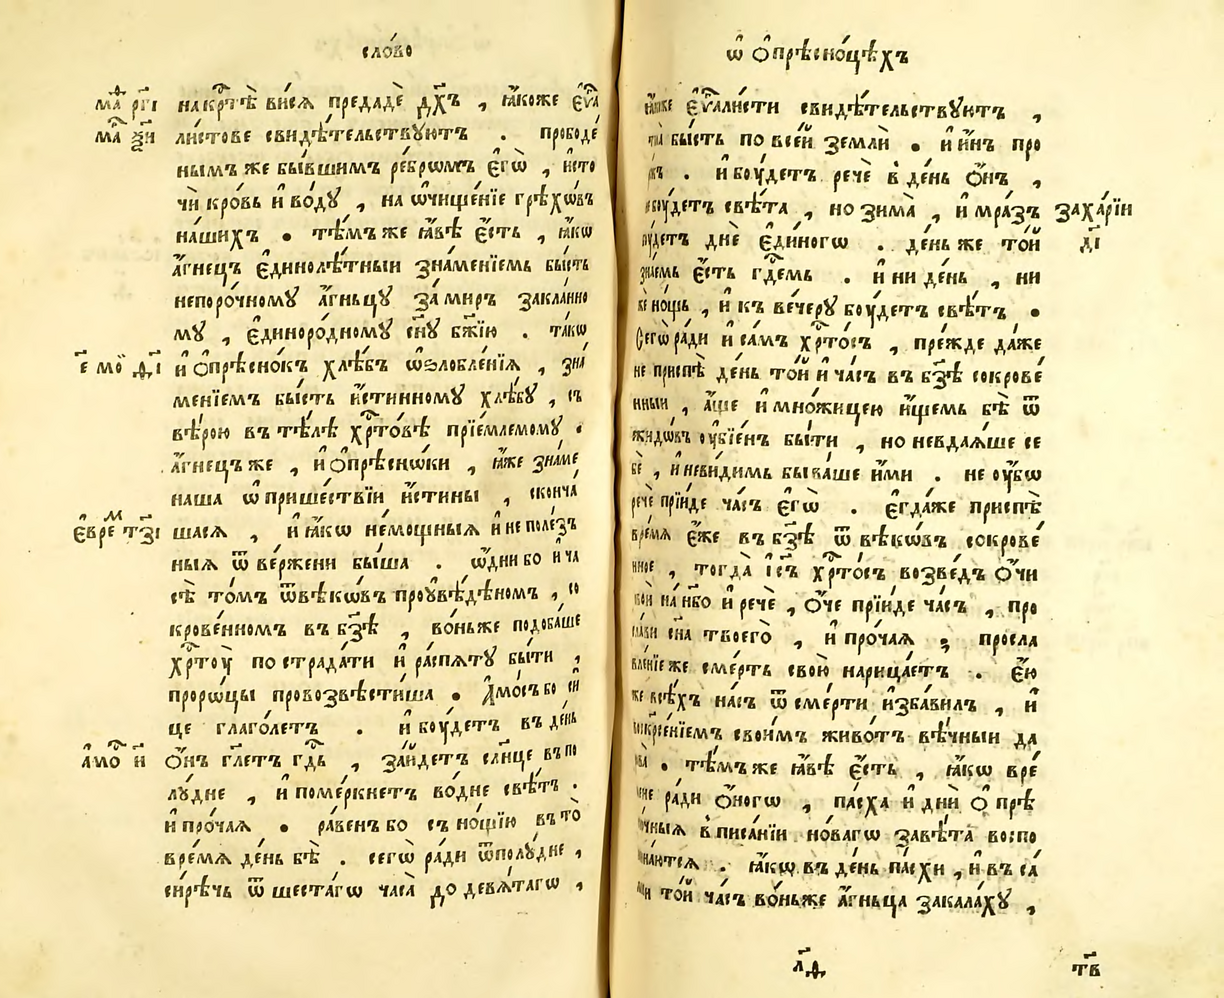 сло́во
мѳ҃ ргі на кр҃тѣ̀ вися̀ предадѐ дх҃ъ , ꙗ҆́коже є҆ѵⷢ҇а
мⷬ҇а ѯ҃и ли́стове свидѣ́тельствꙋютъ . прободе́
нымъ же бы́вшимъ ре́брѡмъ є҆гѡ̀ , и҆сто
чѝ кро́вь и҆ во́дꙋ , на ѡ҆чище́нїе грѣхѡ́въ
на́шихъ . тѣ́мъ же ꙗ҆́вѣ є҆́сть , ꙗ҆́кѡ
а҆́гнецъ є҆динолѣ́тныи зна́менїемь бы́сть
непоро́чномꙋ а҆́гньцꙋ за́ миръ закла́нно
мꙋ , є҆диноро́дномꙋ сн҃ꙋ бж҃їю . та́кѡ
и҆ ѻ҆прѣсно́къ хлѣ́бъ ѡ҆ѕлобле́нїѧ , зна́
менїемъ бы́сть и҆́стинномꙋ хлѣ́бꙋ , съ
вѣ́рою въ тѣ́лѣ хр҃то́вѣ прїе́млемомꙋ .
а҆́гнецъ же , и҆ ѻ҆прѣсно́ки , ꙗ҆́же зна́ме
наша ѡ҆ прише́ствїи и҆́стины , сконча́
є҆вре́ м тз҃і шасѧ , и҆ ꙗ҆́кѡ не́мощныѧ и҆ не поле́з
ныѧ ѿ ве́ржени бы́ша . ѡ҆́дни бо и҆ ча
сѣ̀ то́мъ ѿвѣ́кѡвъ проꙋвѣ́дѣномъ , со
крове́нномъ въ бз҃ѣ , во́ньже подоба́ше
хр҃тоу̀ по страда́ти и҆ ра́спѧтꙋ бы́ти ,
проро́цы провозвѣсти́ша . А҆мо́съ бо си́
це глаго́летъ . и҆ бꙋ́детъ въ де́нь
а҆мо́ и҃ ѻ҆́нъ гл҃етъ гд҃ь , за́йдетъ сл҃нце въ по
лꙋ́дне , и҆ поме́ркнетъ во́дне свѣ́тъ .
и҆ про́чаѧ . ра́венъ бо съ но́щїю въ то̀
вре́мѧ де́нь бѣ̀ . сегѡ̀ ра́ди ѿполꙋ́дне ,
си́рѣчь ѿ шеста́гѡ часа̀ до девѧ́тагѡ ,
ѡ҆ ѻ҆прѣсно́цѣхъ
є҆ѵⷢ҇али́сти свидѣ́тельствꙋютъ ,
бы́сть по все́й землѝ . и҆ и҆́нъ про
. и҆ боу́детъ речѐ в де́нь ѻ҆́нъ ,
свѣ́та , но зима̀ , и҆ мра́зъ заха́рїи
днѐ є҆ди́ногѡ . де́нь же то́й д҃і
є҆́сть гд҃емь . и҆ ни де́нь , ни
но́щь , и҆ къ ве́черꙋ боу́детъ свѣ́тъ .
Сегѡ̀ ра́ди и҆ са́мъ хр҃то́съ , пре́жде да́же
не приспѣ̀ де́нь то́й и҆ ча́съ въ бз҃ѣ сокрове́
нныи , а҆́ще и҆ мно́жицею и҆́щемь бѣ̀ ѿ
жидѡ́въ ᲂу҆бїе́нъ бы́ти , но невдаѧ́ше се
бѐ , и҆ неви́димь быва́ше и҆́ми . не ᲂу҆̀бѡ
речѐ прїи́де ча́съ є҆гѡ̀ . є҆гда́же приспѣ̀
вре́мѧ є҆́же въ бз҃ѣ ѿ вѣ́кѡвъ сокрове́
нное , тогда̀ і҆с҃ъ хр҃то́съ возве́дъ ѻ҆́чи
на нб҃о и҆ речѐ , ѻ҆́че прїи́де ча́съ , про
сла́ви сн҃а твоего̀ , и҆ про́чаѧ ; просла
вле́нїе же сме́рть свою̀ нарица́етъ . є҆́ю
же всѣ́хъ на́съ ѿ сме́рти и҆зба́вилъ , и҆
свои́мъ живо́тъ вѣ́чныи да
. тѣ́мъ же ꙗ҆́вѣ є҆́сть , ꙗ҆́кѡ вре́
ра́ди ѻ҆́ногѡ , па́сха и҆ дни̑ ѻ҆ прѣ
в писа́нїи но́вагѡ завѣ́та воспо
. ꙗ҆́кѡ въ де́нь па́схи , и҆ въ са́
то́й ча́съ во́ньже а҆́гньца закала́хꙋ ,
л҃д
тв